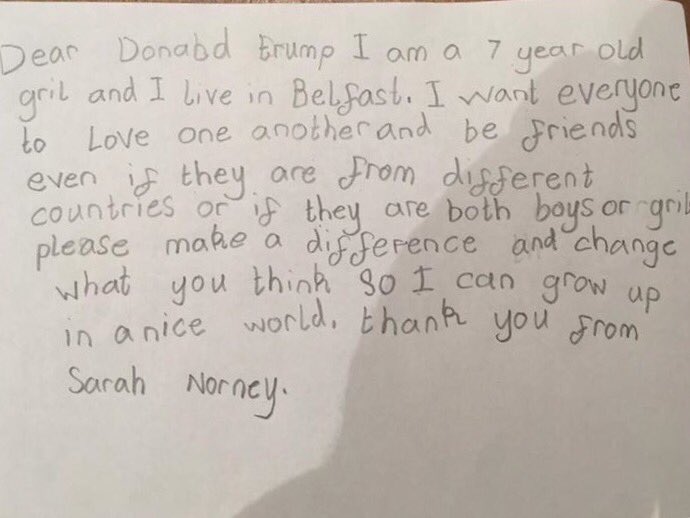 Dear Donabd trump I am a 7 year old
gril and I live in Belfast. I want everyone
to Love one another and be friends
even if they are from different
countries or if they are both boys or gril
please make a difference and change
what you think so I can grow up
in a nice world. thank you from
Sarah Norney.